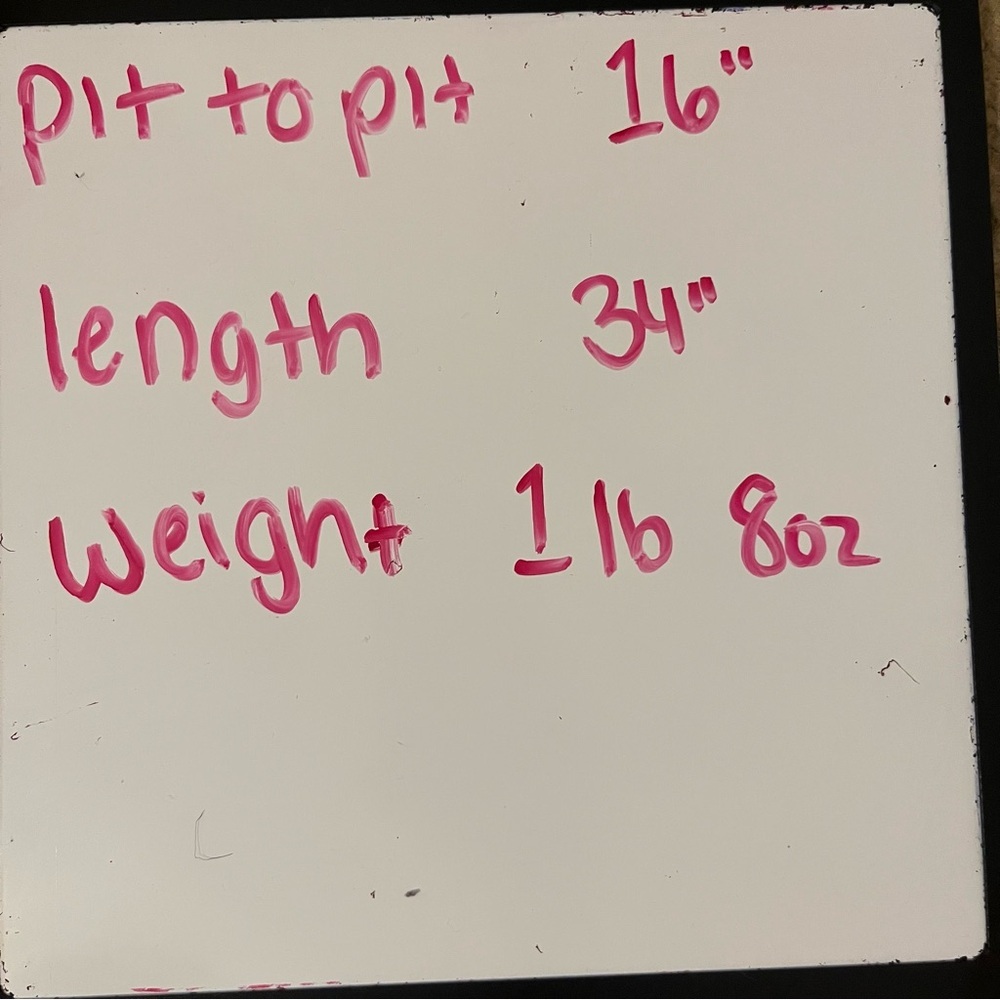 pit to pit 16"
length 34"
weight 1 lb 8oz